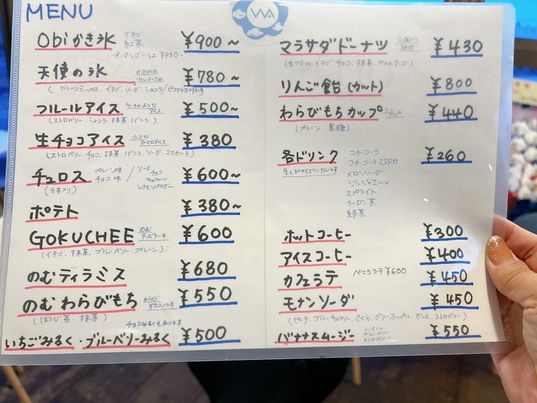 MENU
Obiかき氷 イチゴ 紅茶 ¥900～
天使の氷 ¥780～
フルールアイス ¥500～
(ストロベリー ショコラ 抹茶 バニラ)
生チョコアイス ¥380
チュロス プレーン味 チョコ味 ¥600～
ポテト ¥380～
GOKUCHEE のむチーズケーキ ¥600
(イチゴ、抹茶、ブルーベリー、プレーン)
のむティラミス ¥680
のむわらびもち ¥550
(ほうじ茶・抹茶)
いちごみるく・ブルーベリーみるく ¥500
マラサダドーナツ ¥430
りんご飴(カット) ¥800
わらびもちカップ ¥440
(プレーン 黒糖)
各ドリンク ¥260
コカ・コーラ
コカ・コーラゼロ
メロンソーダ
ジンジャエール
スプライト
ウーロン茶
緑茶
ホットコーヒー ¥300
アイスコーヒー ¥400
カフェラテ ¥450
モナンソーダ ¥450
バナナスムージー ¥550